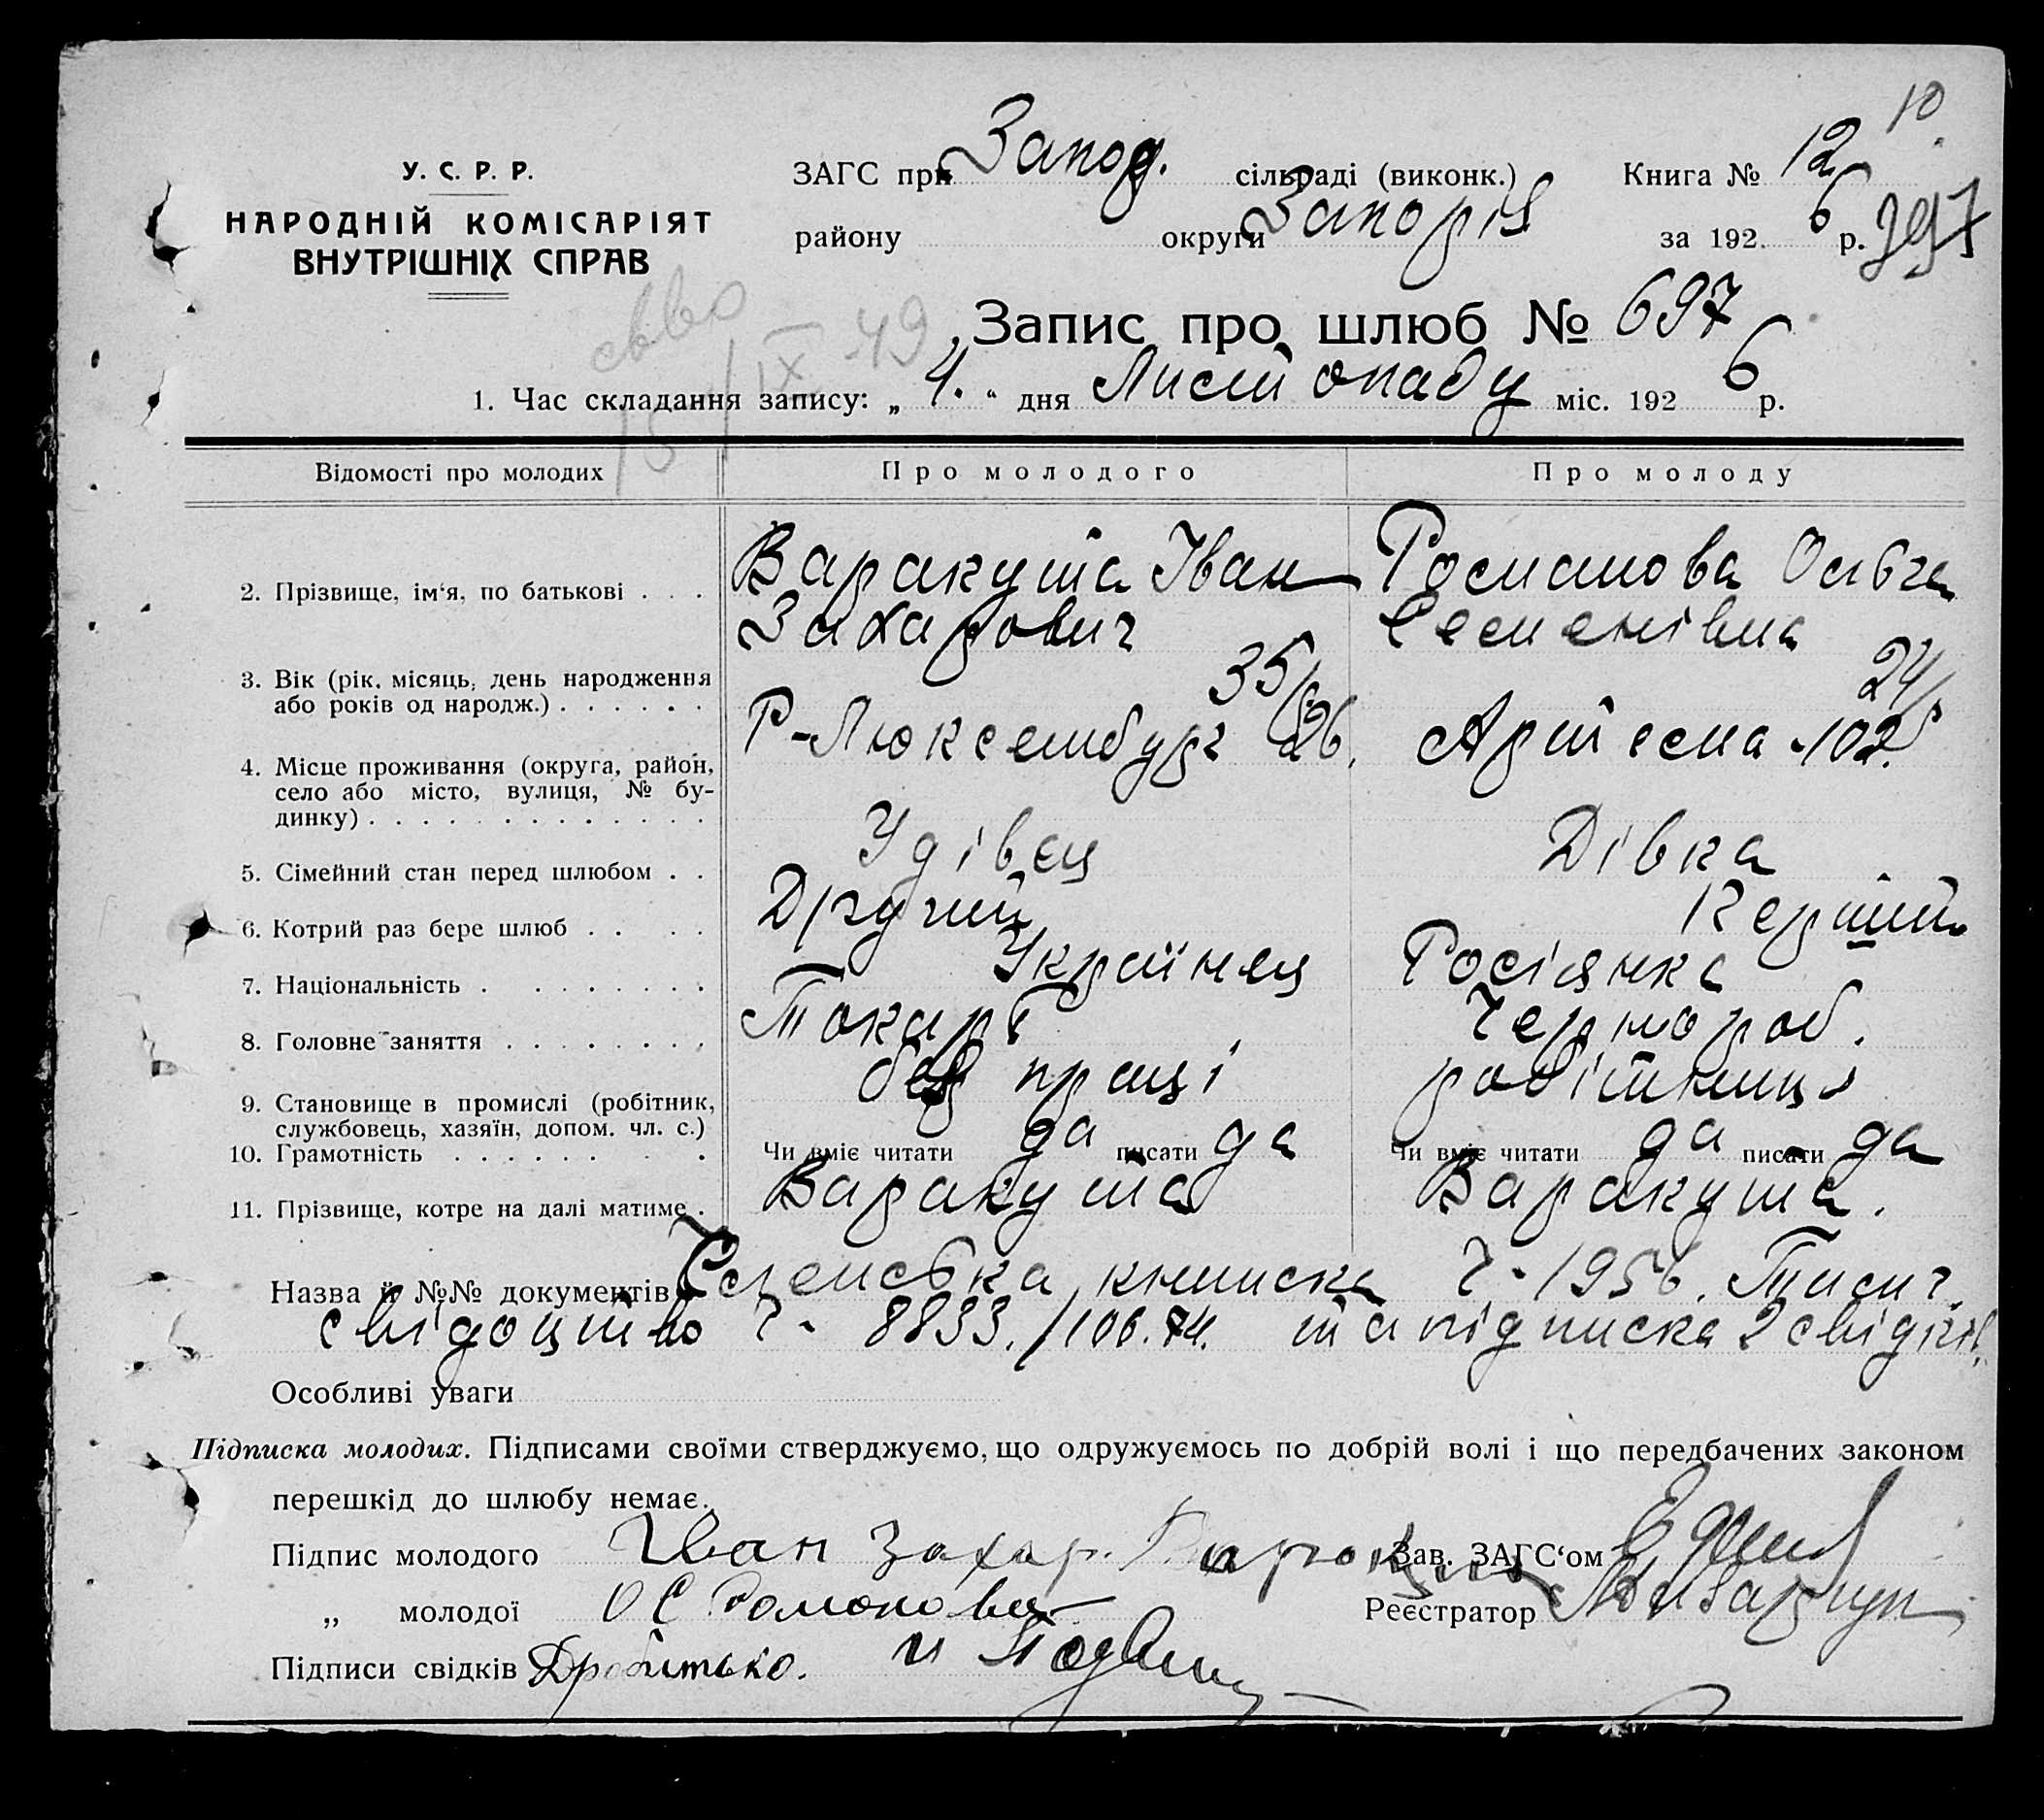 10
У. С. Р. Р.
НАРОДНІЙ КОМІСАРІЯТ
ВНУТРІШНІХ СПРАВ
ЗАГС при Запор. сільраді (виконк.) Книга № 12
району округи Запоріз за 1926 р. 397
Запис про шлюб № 697
сьво
15/IX-49
1. Час складання запису: „4.“ дня Листопаду міс. 1926 р.
Відомості про молодих Про молодого Про молоду
2. Прізвище, ім‘я, по батькові . . . Варакута Іван Романова Ольга
Захарович Семенівна
3. Вік (рік, місяць, день народження 35 24
або років од народж.) . . . . . .
Р-Люксембург 26. Артема 102.
4. Місце проживання (округа, район,
село або місто, вулиця, № бу-
динку) . . . . . . . . . . . . .
5. Сімейний стан перед шлюбом . . Удівец Дівка
6. Котрий раз бере шлюб . . . . Другий Перший
7. Національність . . . . . . . . Українец Росіянка
8. Головне заняття . . . . . . . . Токарь Чернороб.
9. Становище в промислі (робітник, без праці робітниця
службовець, хазяїн, допом. чл. с.)
10. Грамотність . . . . . . . . Чи вміє читати да писати да Чи вміє читати да писати да
11. Прізвище, котре на далі матиме . Варакута Варакута.
Назва й №№ документів книжка ч-1956. Тисч.
свідоцтво ч- 8833./106.74. та підписка 2 свідків.
Особливі уваги
Підписка молодих. Підписами своїми стверджуємо, що одружуємось по добрій волі і що передбачених законом
перешкід до шлюбу немає.
Підпис молодого Иван Захар. Зав. ЗАГС‘ом
„ молодої О С Романова Реєстратор
Підписи свідків Дробитько. и